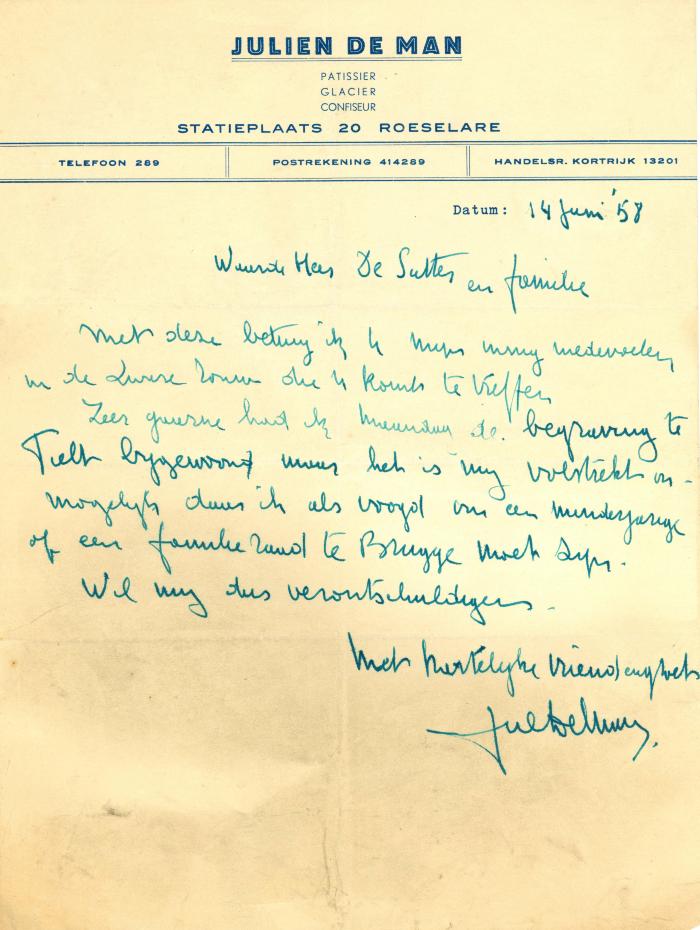 JULIEN DE MAN
PATISSIER
GLACIER
CONFISEUR
STATIEPLAATS 20 ROESELARE
TELEFOON 289
POSTREKENING 414289
HANDELSR. KORTRIJK 13201
Datum: 14 Juni '58
Waarde Heer De Sutter en familie
Met deze betuig ik U mijn innig medevoelen
in de zware rouw die U komt te treffen
Zeer gaarne had ik maandag de begraving te
Tielt bijgewoond maar het is mij volstrekt on-
mogelijk daar ik als voogd van een minderjarige
op een familieraad te Brugge moet zijn.
Wil mij dus verontschuldigen.
Met hartelijke vriendengroet
Jul DeMan